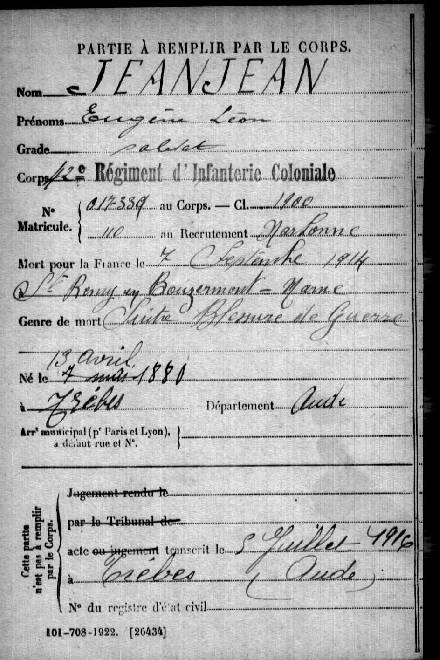 PARTIE À REMPLIR PAR LE CORPS.
Nom JEANJEAN
Prénoms Eugène Léon
Grade soldat
Corps 12e Régiment d'Infanterie Coloniale
N° Matricule. 017389 au Corps. — Cl. 1900
110 au Recrutement Narbonne
Mort pour la France le 7 Septembre 1914
à St Remy en Bouzermont = Marne
Genre de mort Suite Blessure de Guerre
13 avril
Né le 7 mai 1880
à Trèbes Département Aude
Arrt municipal (pr Paris et Lyon),
à défaut rue et N°.
Cette partie n'est pas à remplir par le Corps.
Jugement rendu le
par le Tribunal de
acte ou jugement transcrit le 5 Juillet 1916
à Trèbes (Aude)
N° du registre d'état civil
101-708-1922. [26434]